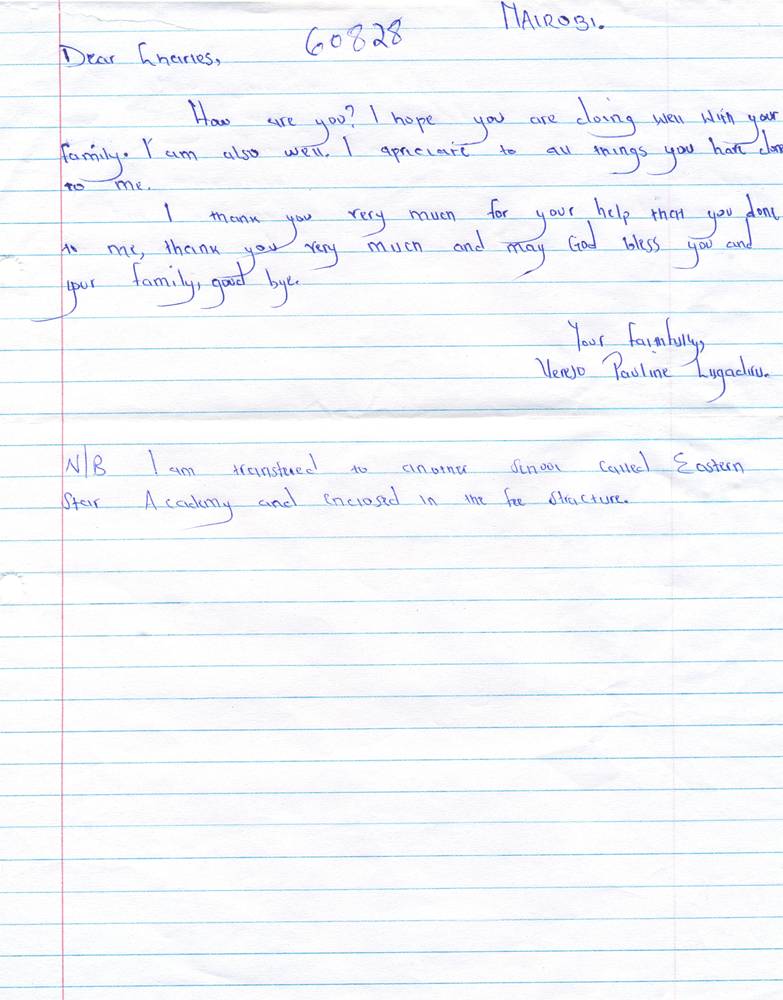 NAIROBI.
60828
Dear Charles,
How are you? I hope you are doing well with your
family. I am also well. I apriciate to all things you have done
to me.
I thank you very much for your help that you done
to me, thank you very much and may God bless you and
your family, good bye.
Your faithfully,
Pauline Lugadiru.
N/B I am transfered to another school called Eastern
Star Academy and enclosed in the fee structure.